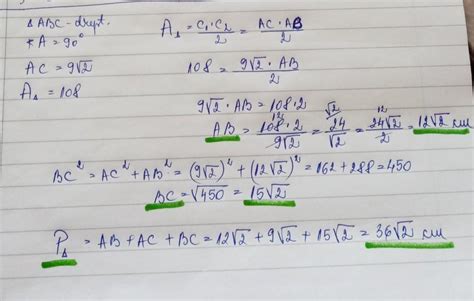 Δ ABC - drept.
∢A = 90°
AC = 9√2
A_Δ = 108
A_Δ = C₁·C₂/2 = AC·AB/2
108 = 9√2·AB/2
9√2·AB = 108·2
AB = 108·2/9√2 = 24/√2 = 24√2/2 = 12√2 cm
BC² = AC² + AB² = (9√2)² + (12√2)² = 162 + 288 = 450
BC = √450 = 15√2
P_Δ = AB + AC + BC = 12√2 + 9√2 + 15√2 = 36√2 cm